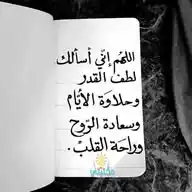 اللهم إني أسألك
لطف القدر
وحلاوة الأيام
وسعادة الروح
وراحة القلب.